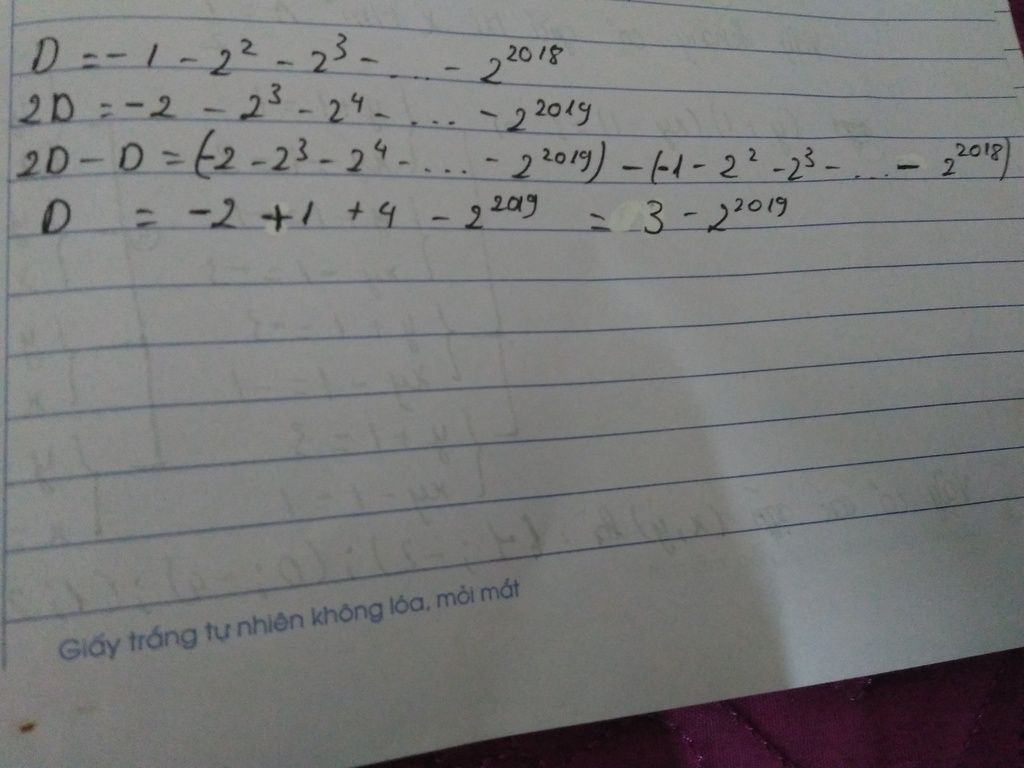 D = - 1 - 2² - 2³ - ... - 2²⁰¹⁸
2D = - 2 - 2³ - 2⁴ - ... - 2²⁰¹⁹
2D - D = (-2 - 2³ - 2⁴ - ... - 2²⁰¹⁹) - (-1 - 2² - 2³ - ... - 2²⁰¹⁸)
D = -2 + 1 + 4 - 2²⁰¹⁹ = 3 - 2²⁰¹⁹
Giấy trắng tự nhiên không lóa, mỏi mắt